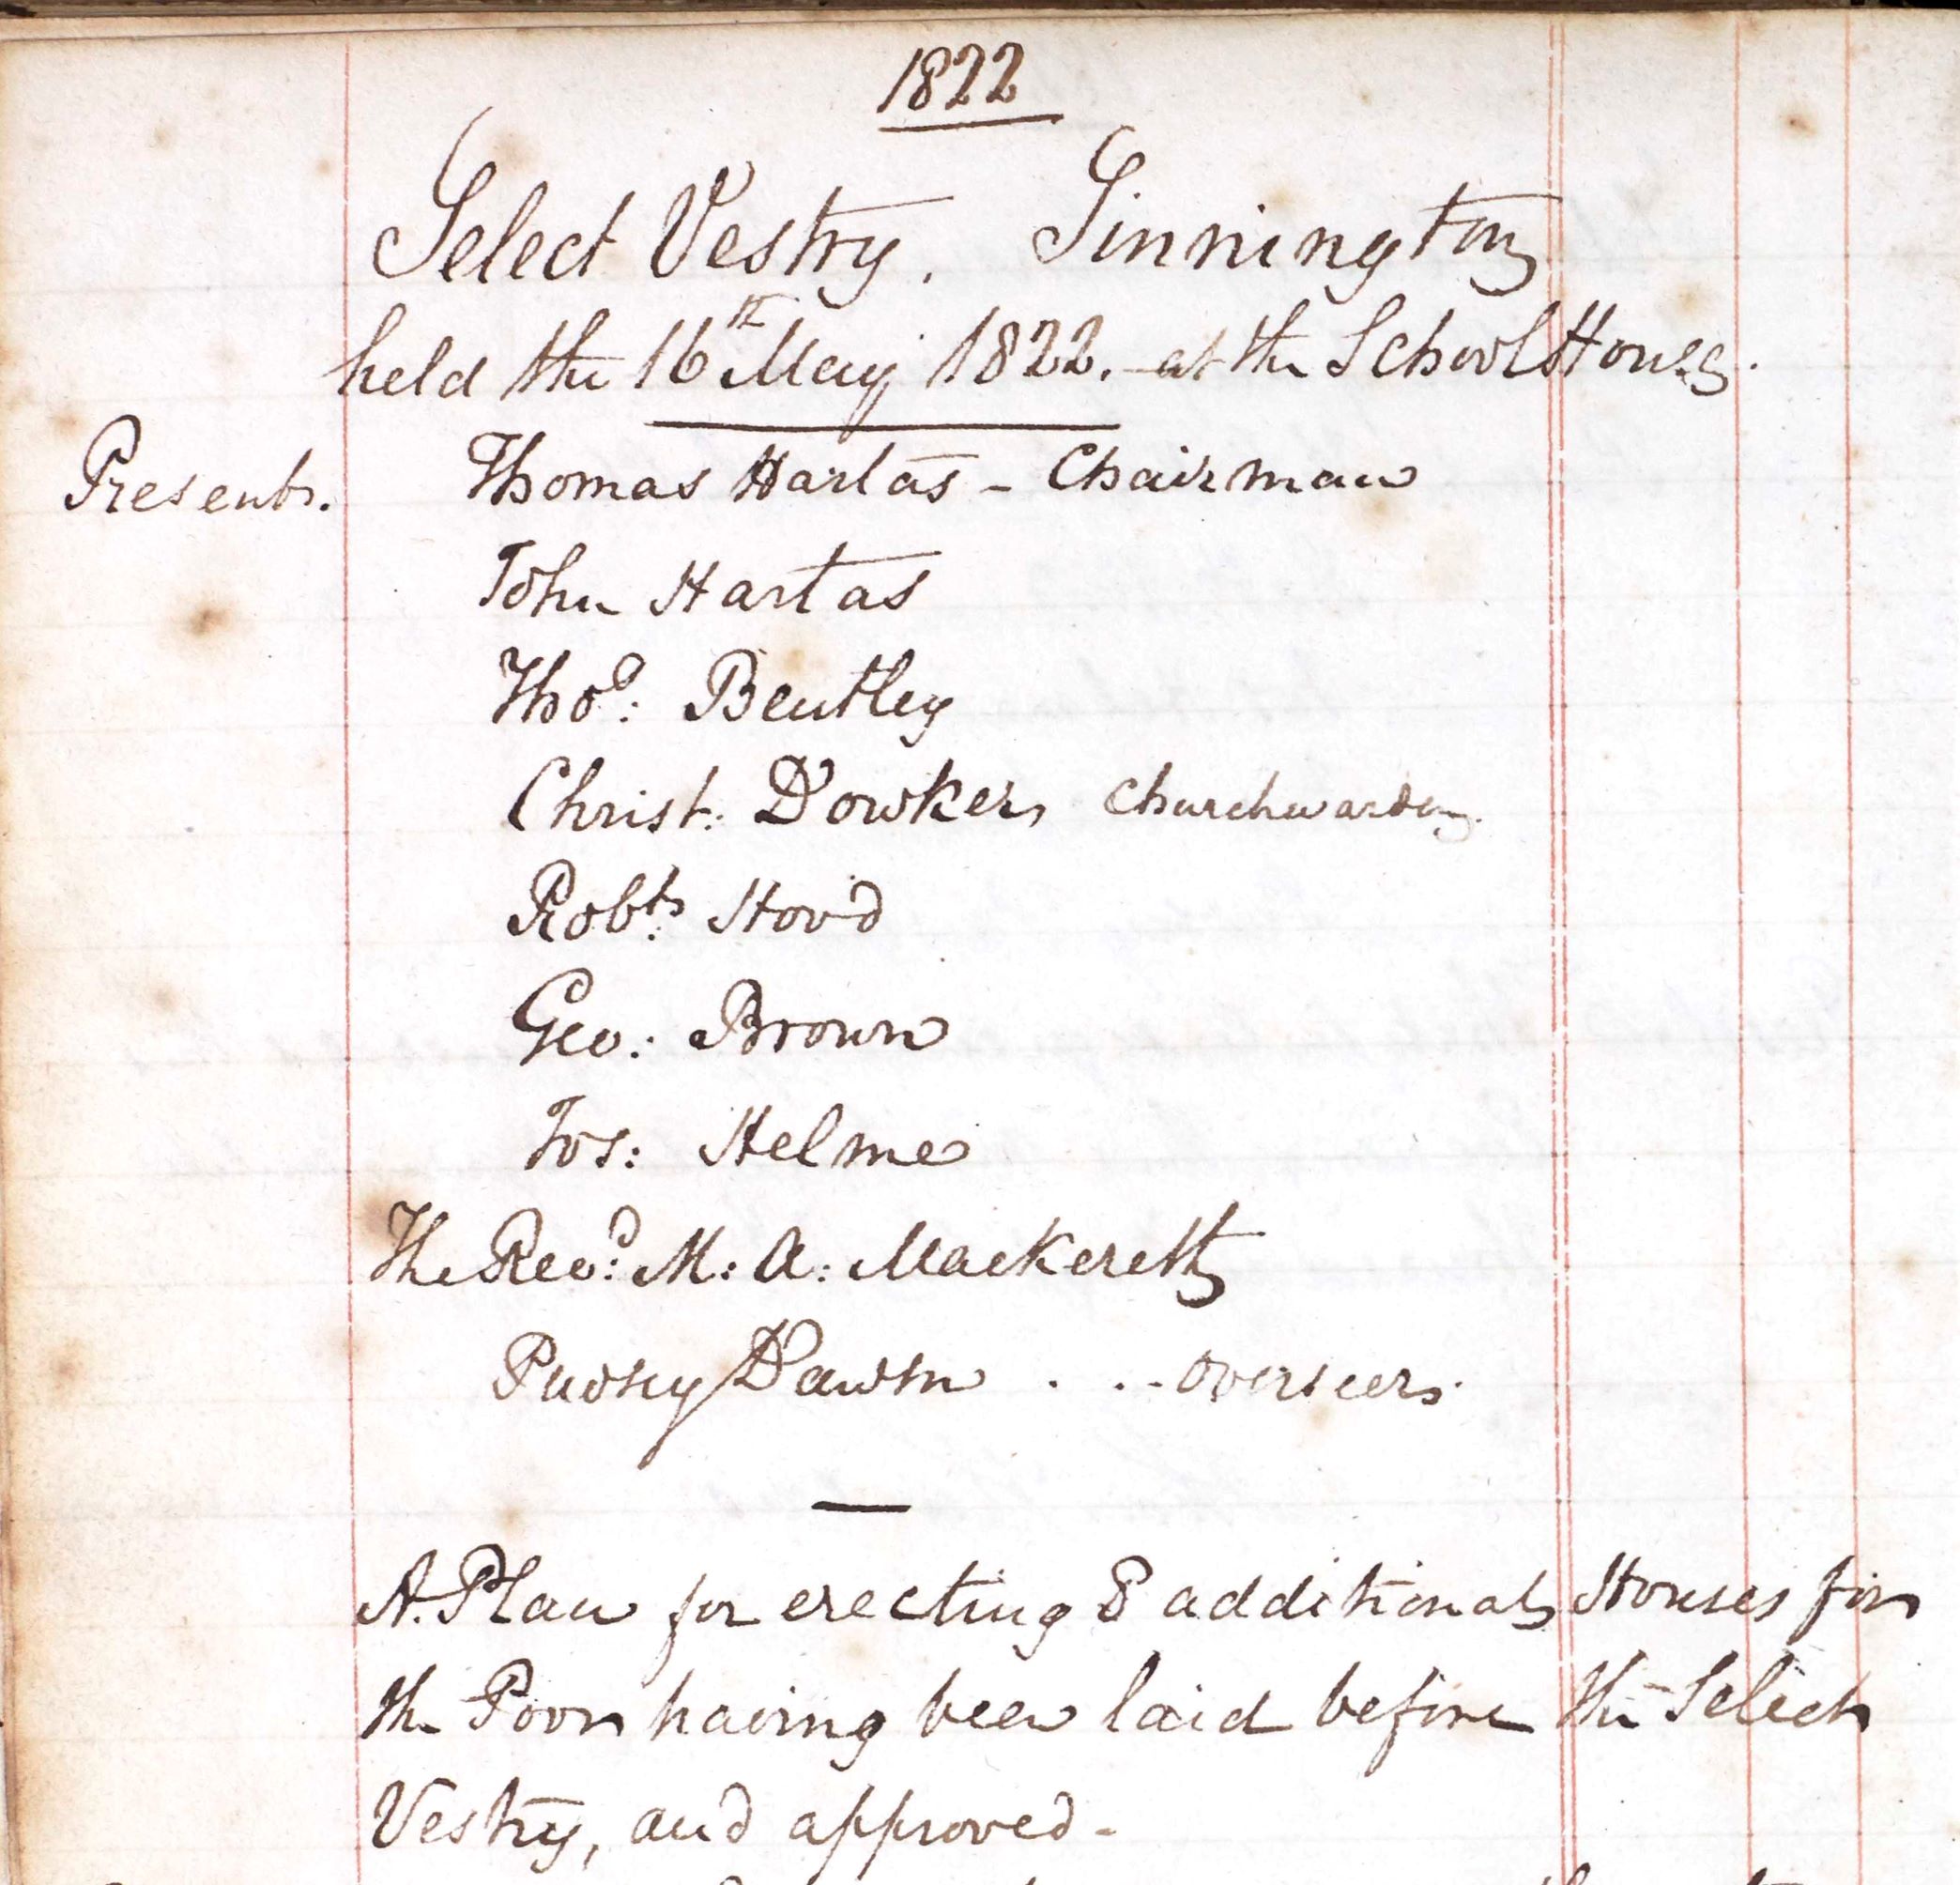 1822
Select Vestry. Sinnington
held the 16th May 1822. at the School House.
Present. Thomas Hartas - Chairman
John Hartas
Thos: Bentley
Christ: Dowker, Churchwarden.
Robt: Hood
Geo: Brown
Jos: Helme
The Revd: M: A: Mackereth
Pudsey Dawson . . . Overseer.
A Plan for erecting 8 additional Houses for
the Poor having been laid before the Select
Vestry, and approved -